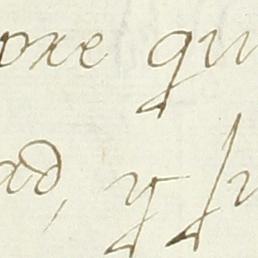 pre qu
ad, y su